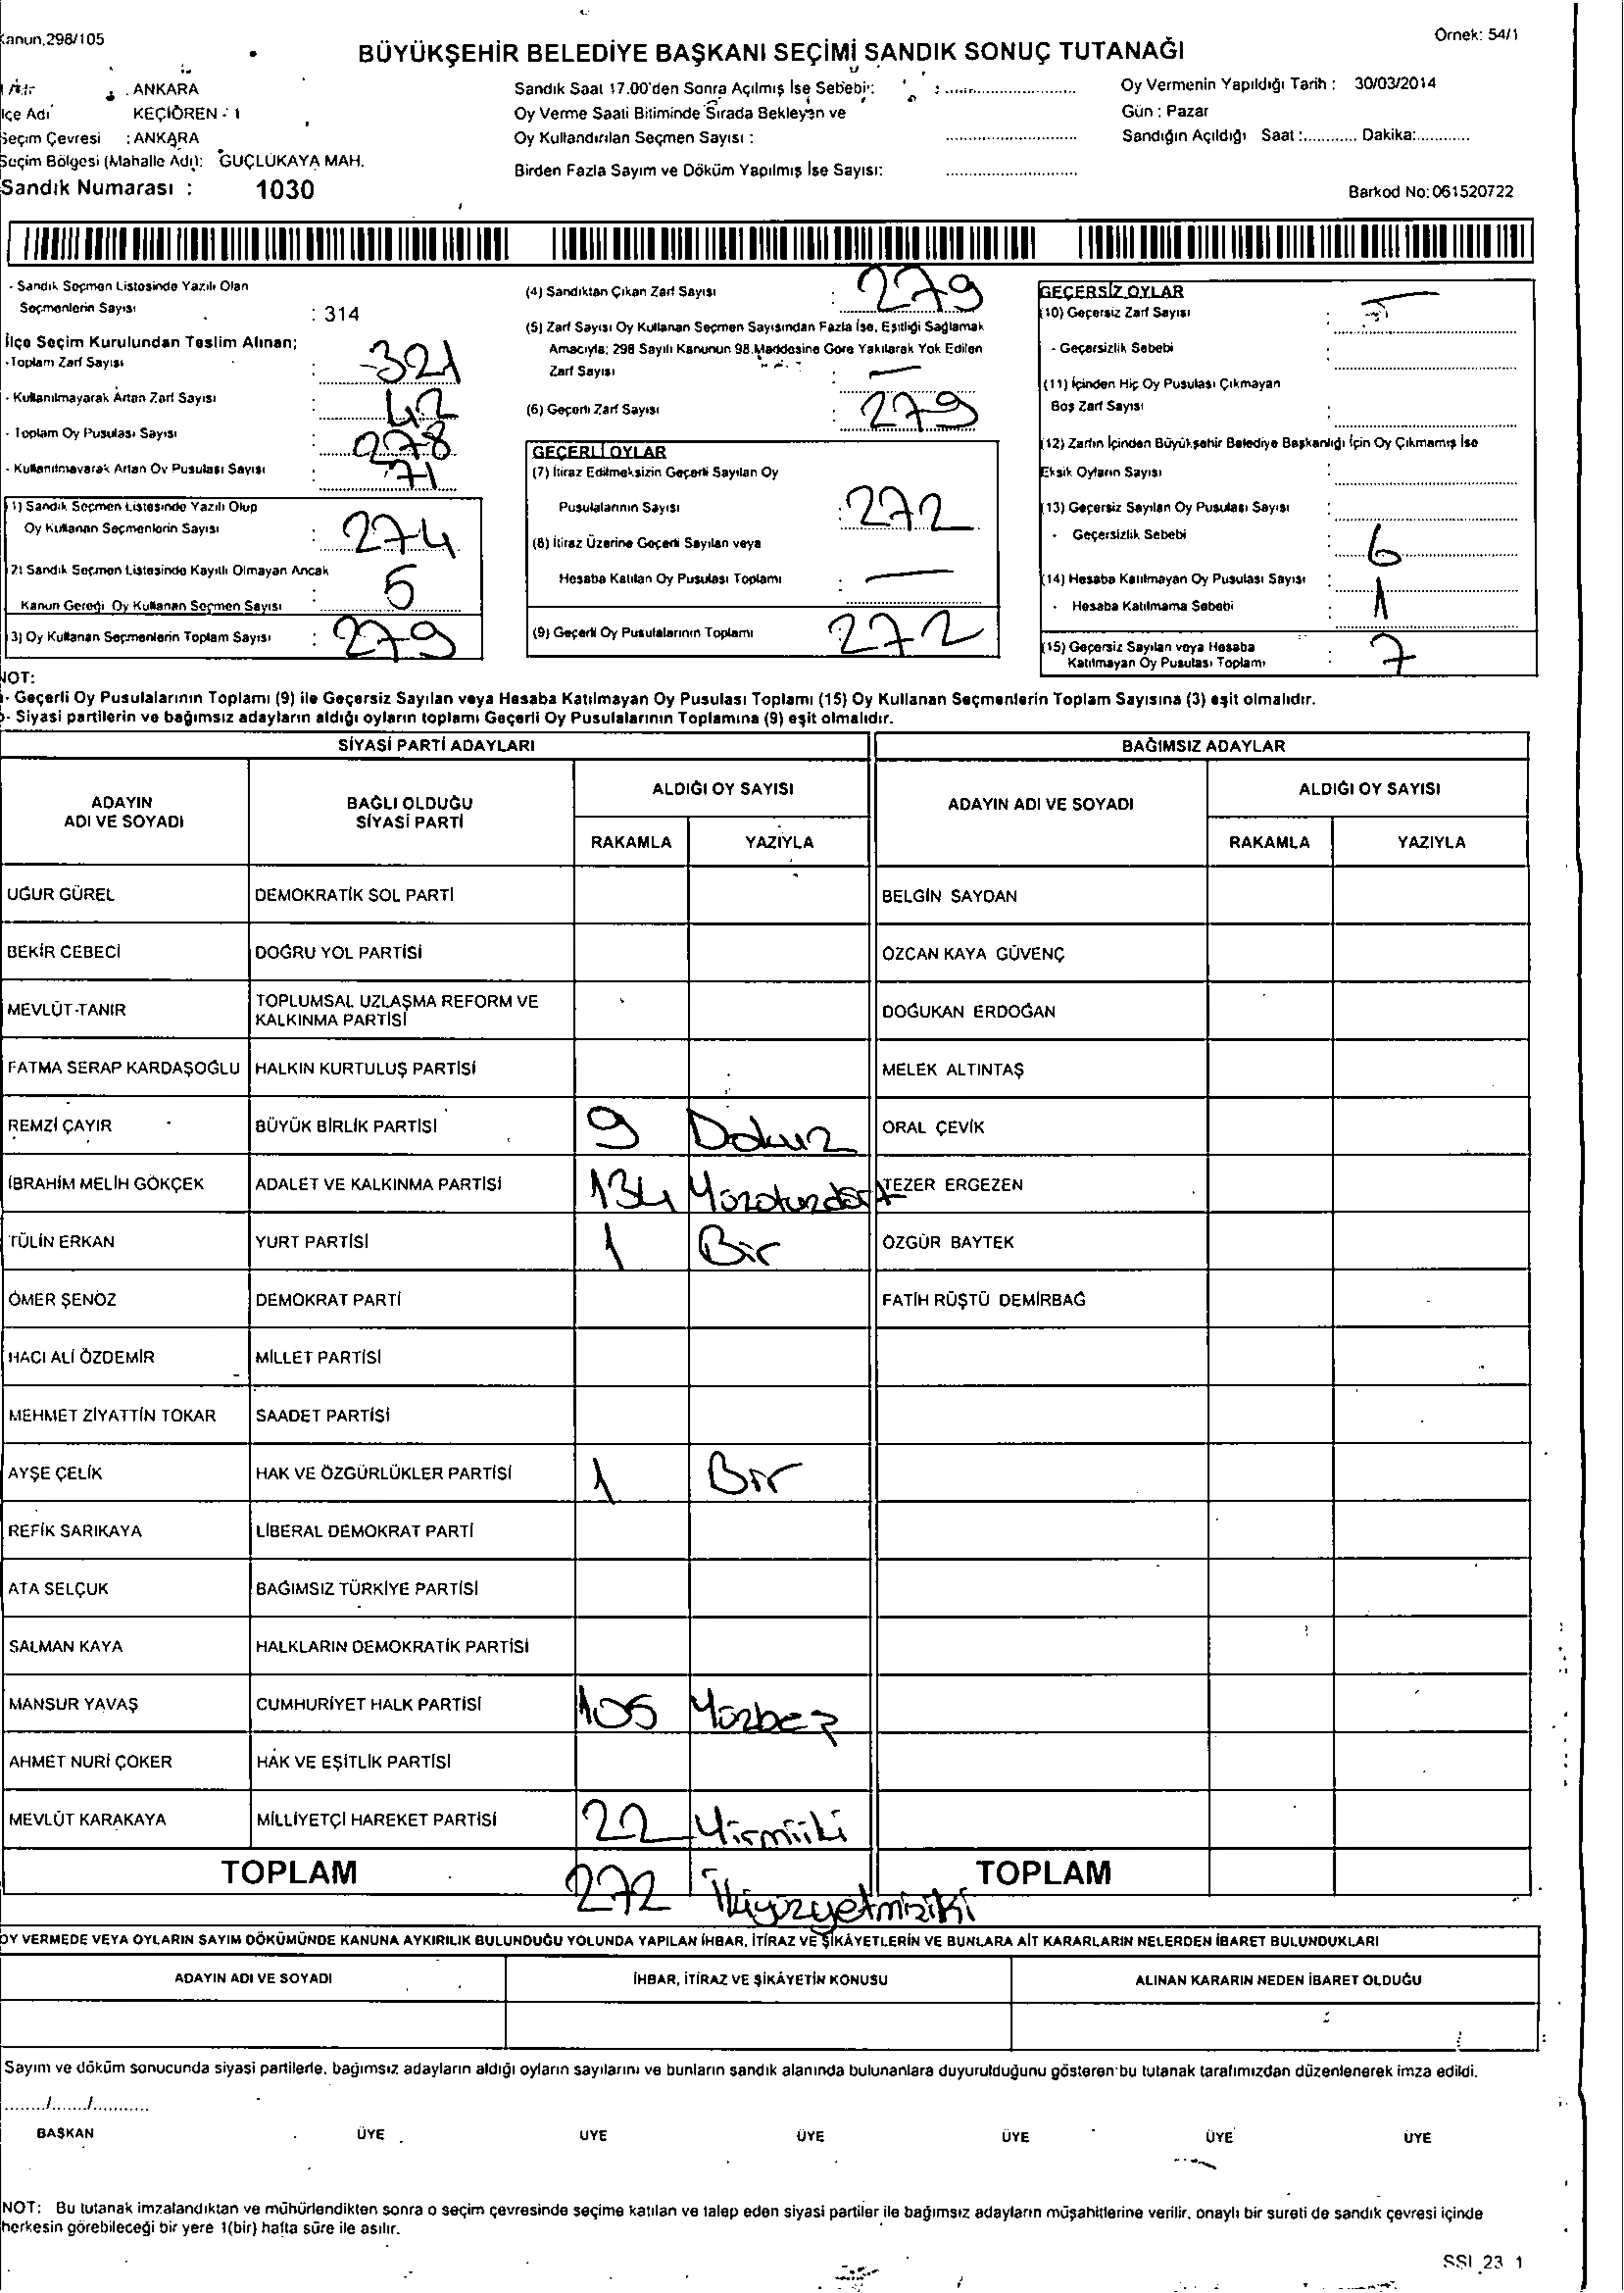 Kanun,298/105
Örnek: 54/1
BÜYÜKŞEHİR BELEDİYE BAŞKANI SEÇİMİ SANDIK SONUÇ TUTANAĞI
: ANKARA
İlçe Adı KEÇİÖREN - 1
Seçim Çevresi : ANKARA
Seçim Bölgesi (Mahalle Adı): GÜÇLÜKAYA MAH.
Sandık Numarası : 1030
Sandık Saat 17.00'den Sonra Açılmış İse Sebebi: : ..............................
Oy Verme Saati Bitiminde Sırada Bekleyen ve
Oy Kullandırılan Seçmen Sayısı : ..............................
Birden Fazla Sayım ve Döküm Yapılmış İse Sayısı: ..............................
Oy Vermenin Yapıldığı Tarih : 30/03/2014
Gün : Pazar
Sandığın Açıldığı Saat :............ Dakika:............
Barkod No: 061520722
- Sandık Seçmen Listesinde Yazılı Olan
Seçmenlerin Sayısı : 314
İlçe Seçim Kurulundan Teslim Alınan;
-Toplam Zarf Sayısı : 321
- Kullanılmayarak Artan Zarf Sayısı : 42
- Toplam Oy Pusulası Sayısı : 278
- Kullanılmayarak Artan Oy Pusulası Sayısı 71
1) Sandık Seçmen Listesinde Yazılı Olup
Oy Kullanan Seçmenlerin Sayısı : 274
2) Sandık Seçmen Listesinde Kayıtlı Olmayan Ancak
Kanun Gereği Oy Kullanan Seçmen Sayısı : 5
3) Oy Kullanan Seçmenlerin Toplam Sayısı : 279
(4) Sandıktan Çıkan Zarf Sayısı : 279
(5) Zarf Sayısı Oy Kullanan Seçmen Sayısından Fazla İse, Eşitliği Sağlamak
Amacıyla; 298 Sayılı Kanunun 98.Maddesine Göre Yakılarak Yok Edilen
Zarf Sayısı : —
(6) Geçerli Zarf Sayısı : 279
GEÇERLİ OYLAR
(7) İtiraz Edilmeksizin Geçerli Sayılan Oy
Pusulalarının Sayısı : 272
(8) İtiraz Üzerine Geçerli Sayılan veya
Hesaba Katılan Oy Pusulası Toplamı : —
(9) Geçerli Oy Pusulalarının Toplamı : 272
GEÇERSİZ OYLAR
(10) Geçersiz Zarf Sayısı :
- Geçersizlik Sebebi
(11) İçinden Hiç Oy Pusulası Çıkmayan
Boş Zarf Sayısı :
(12) Zarfın İçinden Büyükşehir Belediye Başkanlığı İçin Oy Çıkmamış İse
Eksik Oyların Sayısı :
(13) Geçersiz Sayılan Oy Pusulası Sayısı :
- Geçersizlik Sebebi : 6
(14) Hesaba Katılmayan Oy Pusulası Sayısı :
- Hesaba Katılmama Sebebi : 1
(15) Geçersiz Sayılan veya Hesaba
Katılmayan Oy Pusulası Toplamı : 7
NOT:
- Geçerli Oy Pusulalarının Toplamı (9) ile Geçersiz Sayılan veya Hesaba Katılmayan Oy Pusulası Toplamı (15) Oy Kullanan Seçmenlerin Toplam Sayısına (3) eşit olmalıdır.
- Siyasi partilerin ve bağımsız adayların aldığı oyların toplamı Geçerli Oy Pusulalarının Toplamına (9) eşit olmalıdır.
SİYASİ PARTİ ADAYLARI BAĞIMSIZ ADAYLAR
ADAYIN ADI VE SOYADI
BAĞLI OLDUĞU SİYASİ PARTİ
ALDIĞI OY SAYISI
RAKAMLA YAZIYLA
ADAYIN ADI VE SOYADI
ALDIĞI OY SAYISI
RAKAMLA YAZIYLA
UĞUR GÜREL DEMOKRATİK SOL PARTİ BELGİN SAYDAN
BEKİR CEBECİ DOĞRU YOL PARTİSİ ÖZCAN KAYA GÜVENÇ
MEVLÜT TANIR TOPLUMSAL UZLAŞMA REFORM VE KALKINMA PARTİSİ DOĞUKAN ERDOĞAN
FATMA SERAP KARDAŞOĞLU HALKIN KURTULUŞ PARTİSİ MELEK ALTINTAŞ
REMZİ ÇAYIR BÜYÜK BİRLİK PARTİSİ 9 Dokuz ORAL ÇEVİK
İBRAHİM MELİH GÖKÇEK ADALET VE KALKINMA PARTİSİ 134 Yüzotuzdört TEZER ERGEZEN
TÜLİN ERKAN YURT PARTİSİ 1 Bir ÖZGÜR BAYTEK
ÖMER ŞENÖZ DEMOKRAT PARTİ FATİH RÜŞTÜ DEMİRBAĞ
HACI ALİ ÖZDEMİR MİLLET PARTİSİ
MEHMET ZİYATTİN TOKAR SAADET PARTİSİ
AYŞE ÇELİK HAK VE ÖZGÜRLÜKLER PARTİSİ 1 Bir
REFİK SARIKAYA LİBERAL DEMOKRAT PARTİ
ATA SELÇUK BAĞIMSIZ TÜRKİYE PARTİSİ
SALMAN KAYA HALKLARIN DEMOKRATİK PARTİSİ
MANSUR YAVAŞ CUMHURİYET HALK PARTİSİ 105 Yüzbeş
AHMET NURİ ÇOKER HAK VE EŞİTLİK PARTİSİ
MEVLÜT KARAKAYA MİLLİYETÇİ HAREKET PARTİSİ 22 Yirmiiki
TOPLAM 272 İkiyüzyetmişiki TOPLAM
OY VERMEDE VEYA OYLARIN SAYIM DÖKÜMÜNDE KANUNA AYKIRILIK BULUNDUĞU YOLUNDA YAPILAN İHBAR, İTİRAZ VE ŞİKÂYETLERİN VE BUNLARA AİT KARARLARIN NELERDEN İBARET BULUNDUKLARI
ADAYIN ADI VE SOYADI İHBAR, İTİRAZ VE ŞİKÂYETİN KONUSU ALINAN KARARIN NEDEN İBARET OLDUĞU
Sayım ve döküm sonucunda siyasi partilerle, bağımsız adayların aldığı oyların sayılarını ve bunların sandık alanında bulunanlara duyurulduğunu gösteren bu tutanak tarafımızdan düzenlenerek imza edildi.
......../......./...........
BAŞKAN ÜYE ÜYE ÜYE ÜYE ÜYE ÜYE
NOT: Bu tutanak imzalandıktan ve mühürlendikten sonra o seçim çevresinde seçime katılan ve talep eden siyasi partiler ile bağımsız adayların müşahitlerine verilir, onaylı bir sureti de sandık çevresi içinde
herkesin görebileceği bir yere 1(bir) hafta süre ile asılır.
SSI_23_1